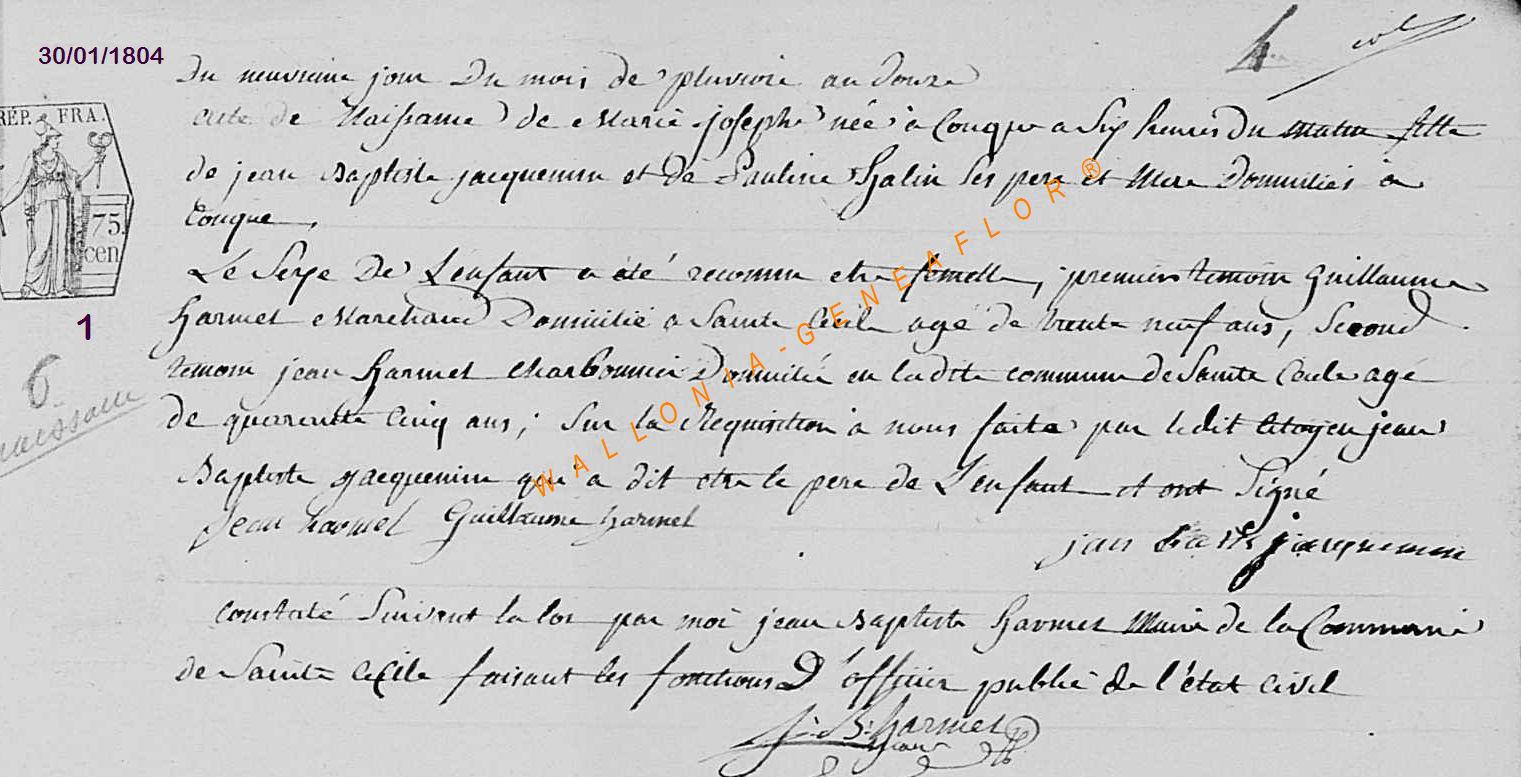 30/01/1804
4 vol
Du neuvieme jour Du mois de pluviose an Douze
RÉP. FRA.
acte de Naissance de Marie josephe née a Conque a Six heures Du matin fille
de jean Baptiste jacquemin et de Pauline Halin Ses pere et Mere Domiciliés a
75.
cen
Conque.
Le Sexe De L'enfant a été reconnu etre femelle, premier temoin Guillaume
1
harmel Marchand Domicilié a Sainte Cecile agé de trente neuf ans, Second
temoin jean harmel charbonnier Domicilié en ladite commune de Sainte Cecile agé
6
naissance
de quarente Cinq ans; Sur la Requisition a nous faite par ledit Citoyen jean
Baptiste jacquemin qui a dit etre le pere de L'enfant et ont Signé
Jean harmel Guillaume harmel
jan jacquemin
constaté Suivant la loi par moi jean Baptiste harmel Maire de la Commune
de Sainte Cecile faisant les fonctions D'officier public de l'état Civil
J. B. harmel
maire
WALLONIA-GENEAFLOR®